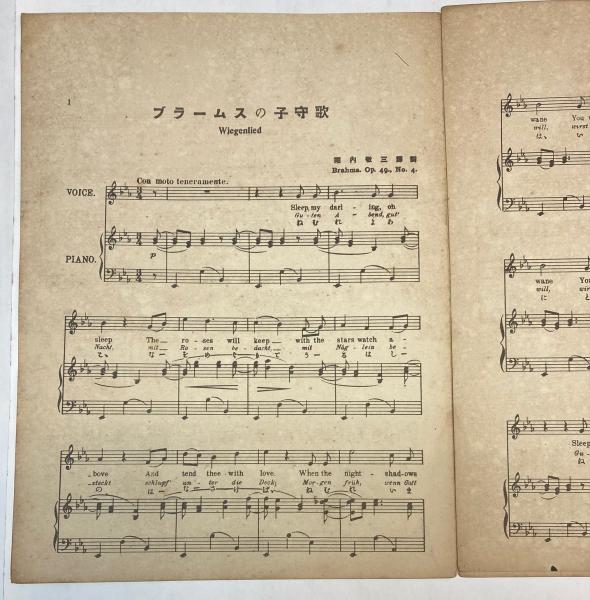 1
ブラームスの子守歌
Wiegenlied
堀内敬三譯詞
Brahms. Op. 49., No. 4.
Con moto teneramente.
VOICE.
Sleep, my darl - ing, oh
Gu - ten A - bend, gut'
ねむれ よわ
PIANO.
p
sleep The ro - ses will keep with the stars watch a -
Nacht, mit Ro - sen be - dacht, mit Näg - lein be -
なーをめぐりてうーるはしー
bove And tend thee with love. When the night - shad-ows
steckt schlupf' un - ter die Deck; Mor - gen früh, wenn Gott
の はーなさけば、ねむれ いま
wane You
will, wirst
wane You
will, wirst
に と
Sleep
Gu -